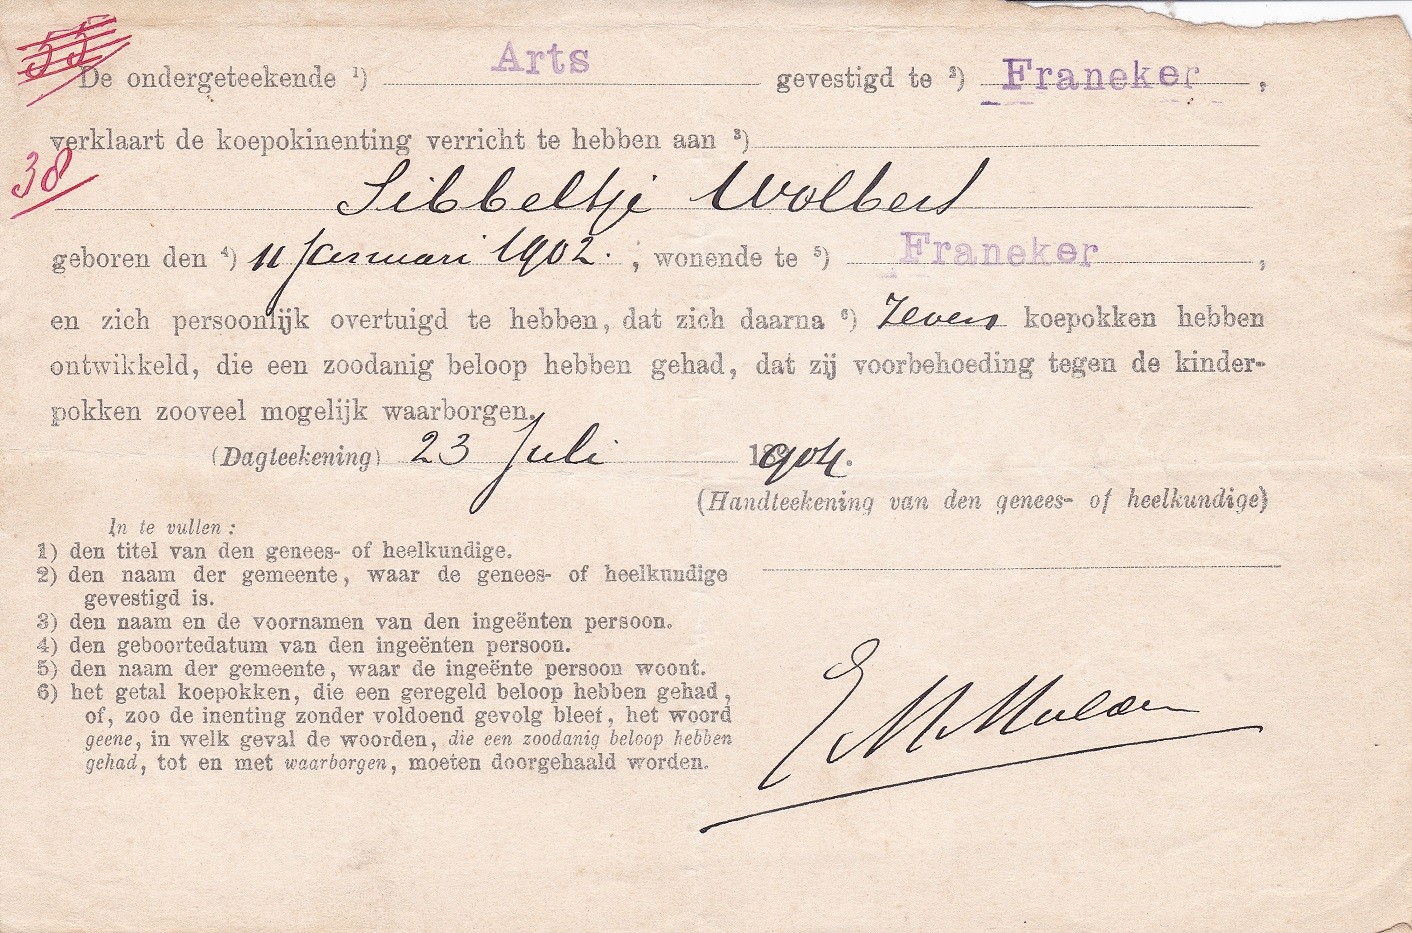 55
De ondergeteekende ¹) Arts gevestigd te ²) Franeker,
verklaart de koepokinenting verricht te hebben aan ³)
38
Sibbeltje Wolbers
geboren den ⁴) 11 Januari 1902. , wonende te ⁵) Franeker,
en zich persoonlijk overtuigd te hebben, dat zich daarna ⁶) Zeven koepokken hebben
ontwikkeld, die een zoodanig beloop hebben gehad, dat zij voorbehoeding tegen de kinder-
pokken zooveel mogelijk waarborgen.
(Dagteekening) 23 Juli 1904.
(Handteekening van den genees- of heelkundige)
In te vullen:
1) den titel van den genees- of heelkundige.
2) den naam der gemeente, waar de genees- of heelkundige
gevestigd is.
3) den naam en de voornamen van den ingeënten persoon.
4) den geboortedatum van den ingeënten persoon.
5) den naam der gemeente, waar de ingeënte persoon woont.
6) het getal koepokken, die een geregeld beloop hebben gehad,
of, zoo de inenting zonder voldoend gevolg bleef, het woord
geene, in welk geval de woorden, die een zoodanig beloop hebben
gehad, tot en met waarborgen, moeten doorgehaald worden.
M Mulder